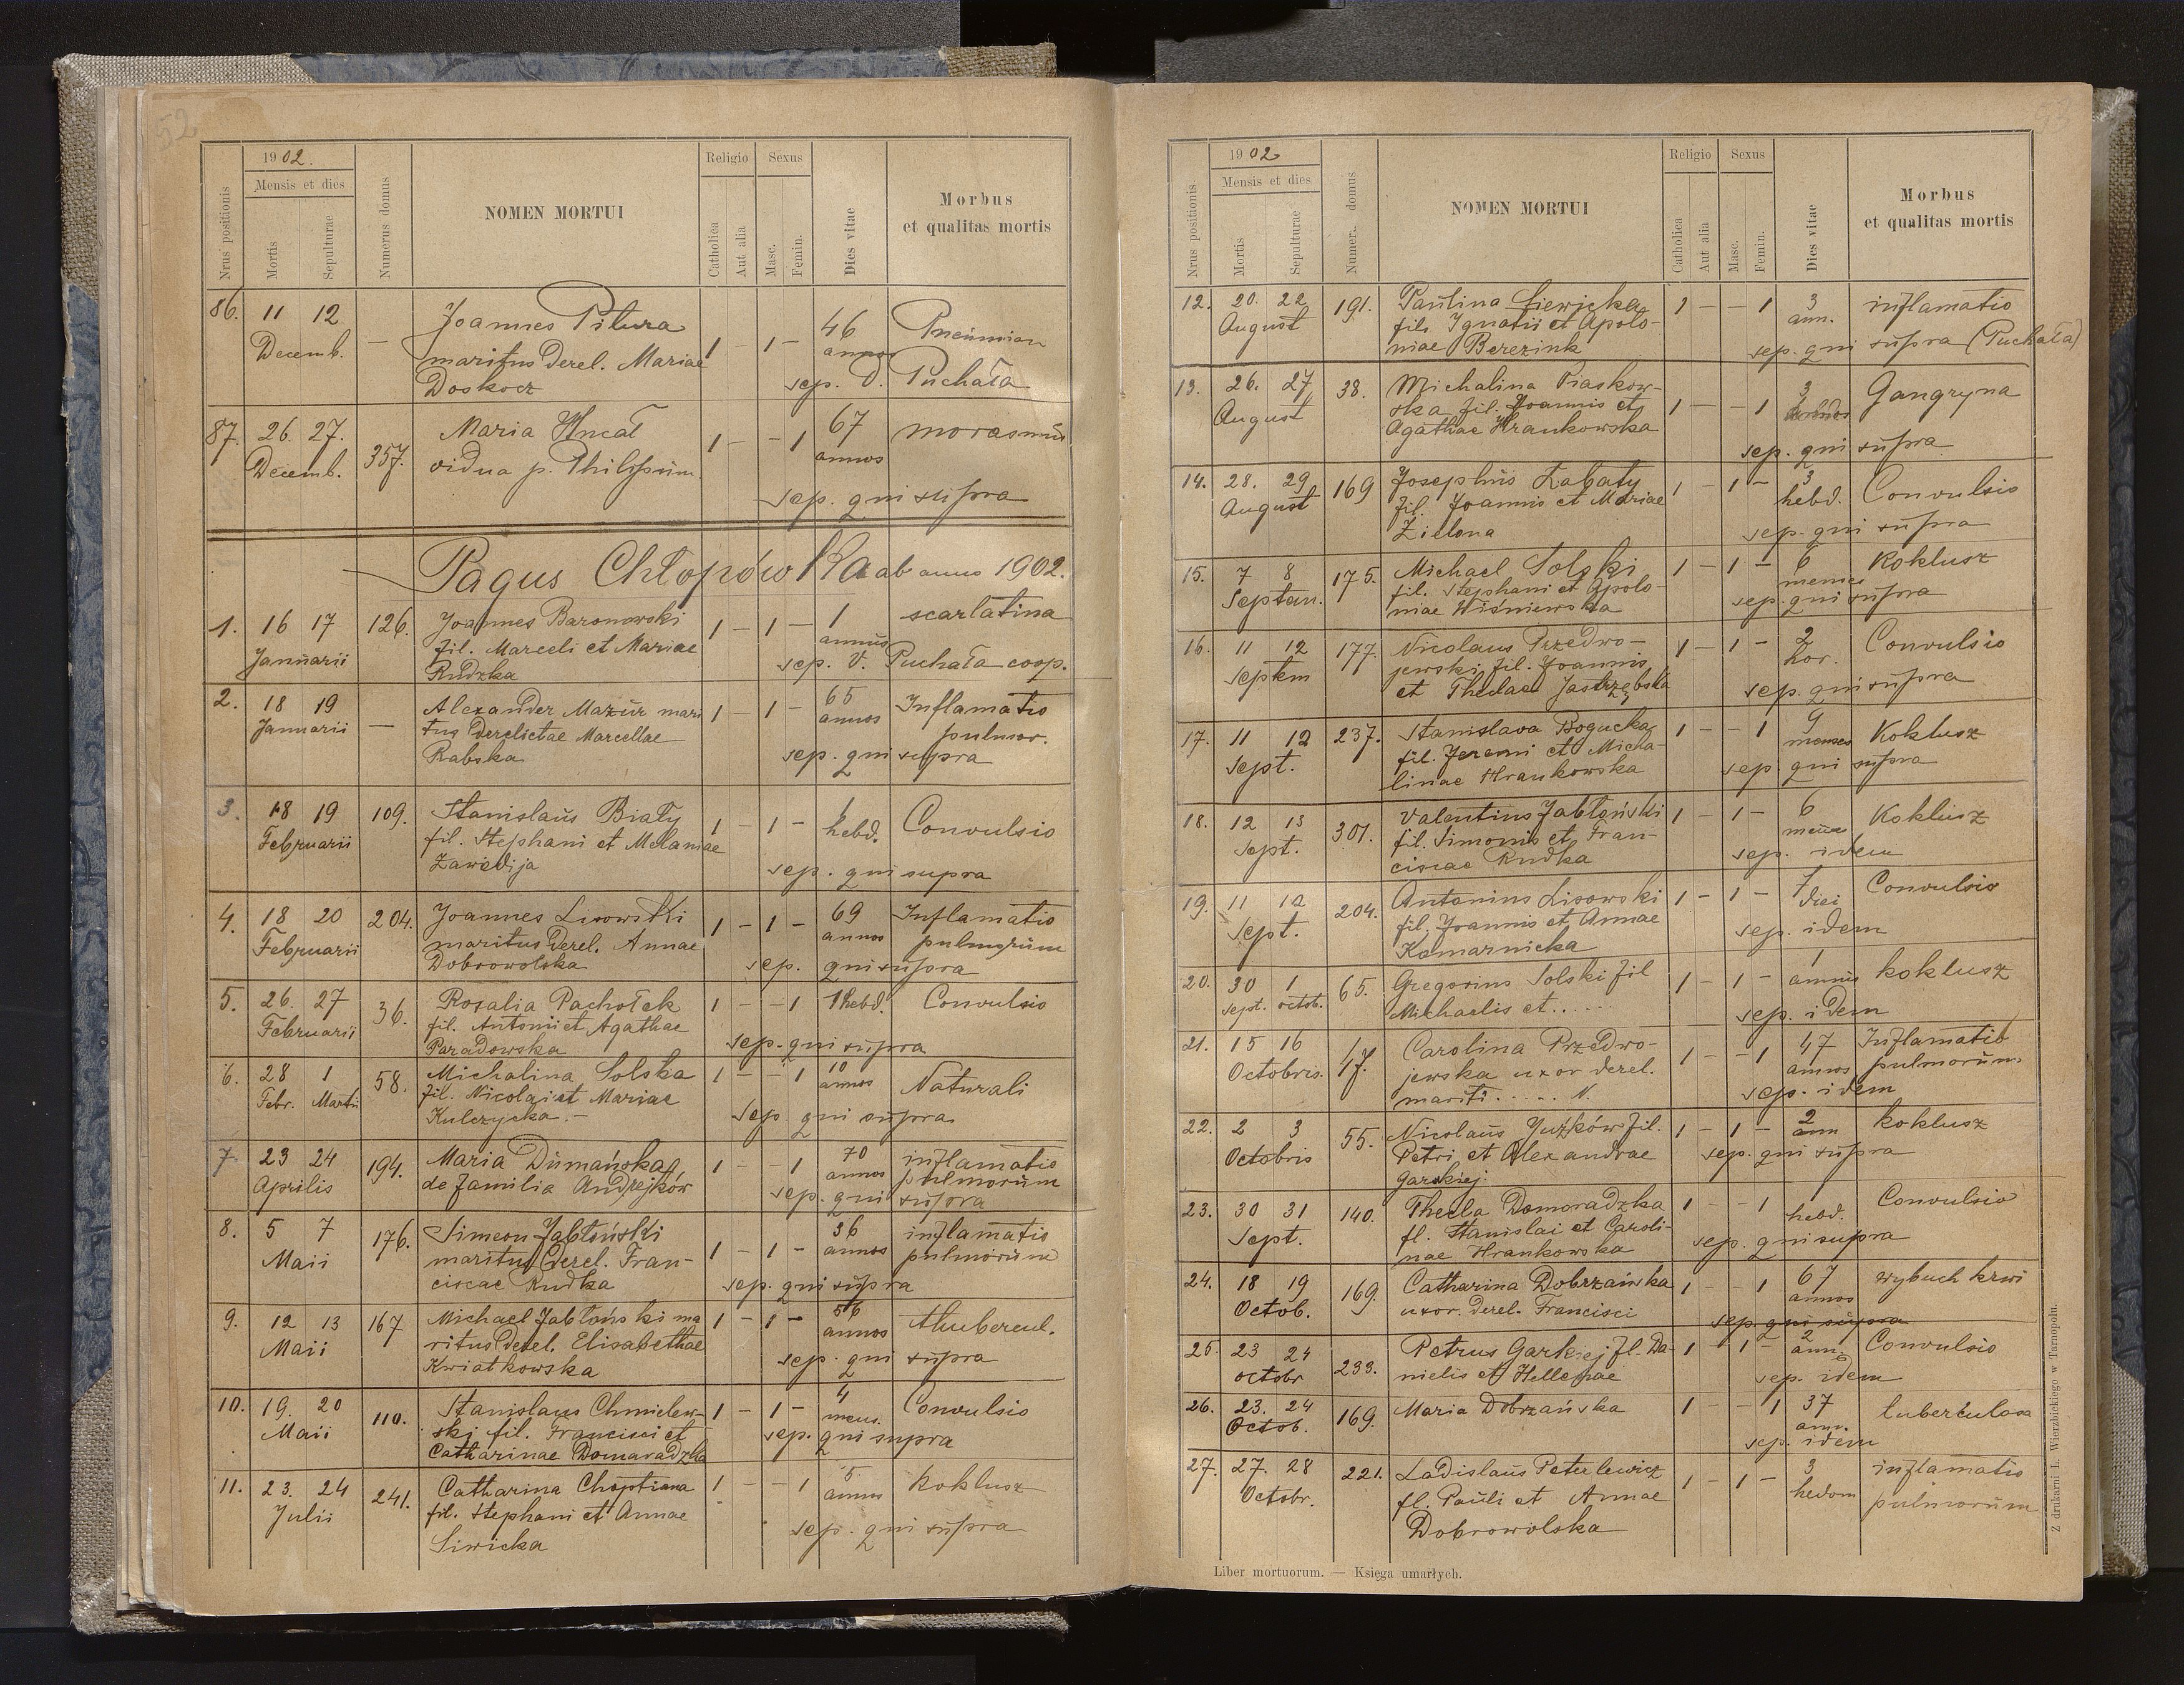 52
1902.
Mensis et dies
Nrus positionis
Mortis
Sepulturae
Numerus domus
NOMEN MORTUI
Religio
Catholica
Aut alia
Sexus
Masc.
Femin.
Dies vitae
Morbus
et qualitas mortis
86. 11 12 Joannes Pitura 46
Decemb. — maritus derel. Mariae 1 - 1 - annos
Doskocz sep. V. Puchała
87. 26. 27. Maria Hncał 67 morasmus
Decemb. 357. vidua p. Philippum. 1 - - 1 annos
sep. qui supra
Pagus Chłopówka ab anno 1902.
1. 16 17 126. Joannes Baronowski 1 - 1 - 1 scarlatina
Januarii fil. Marceli et Mariae annus
Rudzka sep. V. Puchała coop.
2. 18 19 Alexander Mazur mari 1 - 1 - 65 Inflamatio
Januarii — tus derelictae Marcellae annos pulmor.
Rabska sep. qui supra
3. 18 19 109. Stanislaus Biały 1 - 1 - 1 Convulsio
Februarii fil. Stephani et Melaniae hebd.
Zawidija sep. qui supra
4. 18 20 204. Joannes Lisowski 1 - 1 - 69 Inflamatio
Februarii maritus derel. Annae annos pulmorum
Dobrowolska sep. qui supra
5. 26. 27 36. Rozalia Pachołek 1 - - 1 1 hebd. Convulsio
Februarii fil. Antonii et Agathae
Paradowska sep. qui supra
6. 28 1 58. Michalina Solska 1 - - 1 10 Naturali
Febr. Martii fil. Nicolai et Mariae annos
Kulczycka. — sep. qui supra
7. 23 24 194. Maria Dumańska 1 - - 1 70 inflamatio
Aprilis de familia Andrejków annos pulmorum
sep. qui supra
8. 5 7 176. Simeon Jabłoński 1 - 1 - 36 inflamatio
Maii maritus derel. Fran- annos pulmorum
ciscae Rudka sep. qui supra
9. 12 13 167 Michael Jabłoński ma 1 - 1 - 56 thubercul.
Maii ritus derel. Elisabethae annos
Kwiatkowska sep. qui supra
10. 19. 20 110. Stanislaus Chmielew- 1 - 1 - 4 Convulsio
Maii ski fil. Francisci et mens.
Catharinae Domaradzka sep. qui supra
11. 23. 24 241. Catharina Choptiana 1 - - 1 5 koklusz
Julii fil. Stephani et Annae annos
Siwicka sep. qui supra
1902
Mensis et dies
Nrus positionis
Mortis
Sepulturae
Numer. domus
NOMEN MORTUI
Religio
Catholica
Aut alia
Sexus
Masc.
Femin.
Dies vitae
Morbus
et qualitas mortis
12. 20. 22 191. Paulina 1 - - 1 3 inflamatio
August fil. Ignatii et Apolo- ann.
niae Berezink sep. qui supra (Puchała)
13. 26. 27 38. Michalina Piaskow- 1 - - 1 3 Gangryna
August ska fil. Joannis et
Agathae Hrankowska sep. qui supra
14. 28. 29 169 Josephus Łabaty 1 - 1 - 3 Convulsio
August fil. Joannis et Mariae hebd.
Zielona sep. qui supra
15. 7 8 175. Michael Solski 1 - 1 - 6 Koklusz
Septem. fil. Stephani et Apolo- menses
niae Wiśniewska sep. qui supra
16. 11 12 177. Nicolaus Przedwo- 1 - 1 - 2 Convulsio
Septem jewski fil. Joannis hor.
et Theclae Jastrzębska sep. qui supra
17. 11 12 237. Stanislava Bogucka 1 - - 1 9 Koklusz
Sept. fil. Jeremi et Micha- menses
linae Hrankowska sep. qui supra
18. 12 13 301. Valentinus Jabłoński 1 - 1 - 6 Koklusz
Sept. fil. Simonis et Fran-
ciscae Rudka sep. idem
19. 11 12 204. Antonius Lisowski 1 - 1 - 7 Convulsio
Sept. fil. Joannis et Annae diei
Komarnicka sep. idem
20. 30 1 65. Gregorius Solski fil 1 - 1 - 1 koklusz
sept. octob. Michaelis et..... annus
sep. idem
21. 15 16 47. Carolina Przedwo- 1 - - 1 47 Inflamatio
Octobris. jewska uxor derel. annos pulmorum
mariti ..... N. sep. idem
22. 2 3 55. Nicolaus Juzków fil. 1 - 1 - 2 koklusz
Octobris Petri et Alexandrae ann
Garskiej sep. qui supra
23. 30 31 140. Thecla Domoradzka 1 - - 1 Convulsio
Sept. fl. Stanislai et Caroli- hebd.
nae Hrankowska sep. qui supra
24. 18 19 169. Catharina Dobrzańska 1 - - 1 67 wybuch krwi
Octob. uxor. derel. Francisci annos
sep. qui supra
25. 23 24 233. Petrus Garkiej fl. Da- 1 1 - 2 Convulsio
octobr nielis et Hellenae ann.
sep. idem
26. 23. 24 169. Maria Dobrzańska 1 - - 1 37 tuberculosa
Octob. ann.
sep. idem
27. 27. 28 221. Ladislaus Peterlewicz 1 - 1 - 3 inflamatio
Octobr. fl. Pauli et Annae hedom pulmorum
Dobrowolska
Liber mortuorum. — Księga umarłych.
Z drukarni L. Wierzbickiego w Tarnopolu.